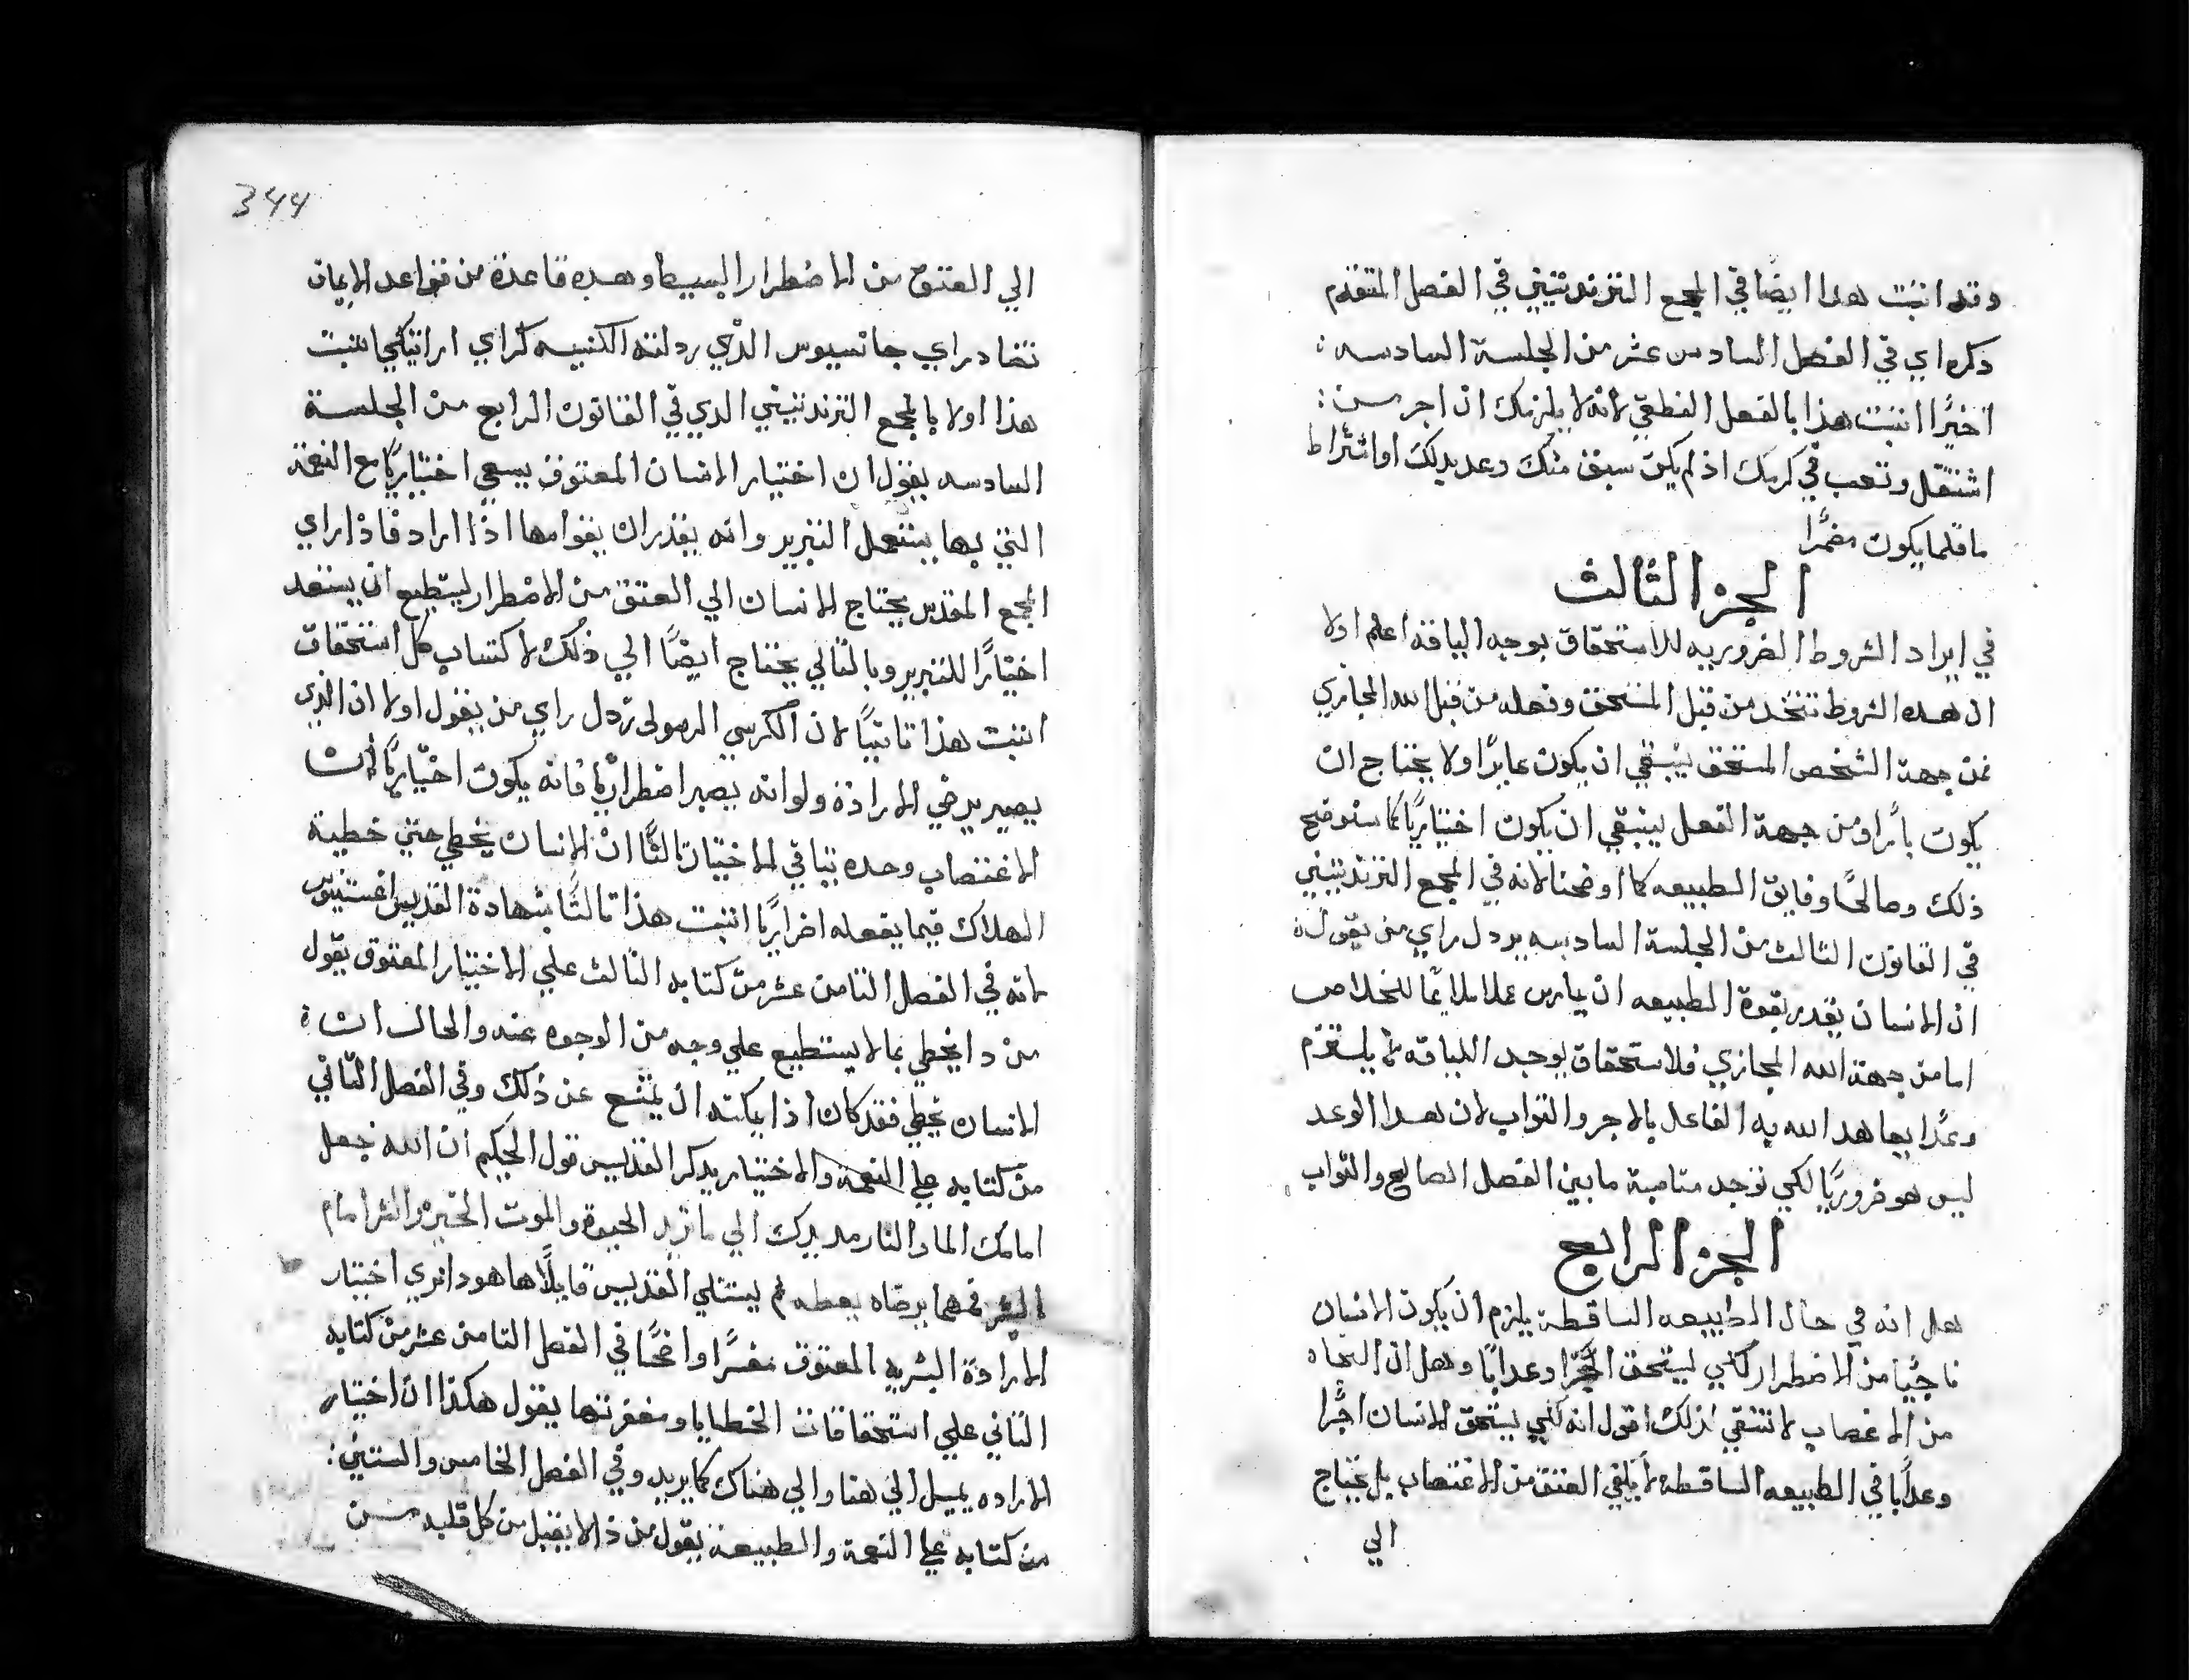 وقد اثبت هدا ايضًا في المجمع التريدنتيني في الفصل المتقدم
ذكره اي في الفصل السادس عشر من الجلسة السادسه :
اخيرًا اثبت هذا بالفعل النطقي لانه لا يلزمك ان اجر من :
اشتغل وتعب في كرمك اذ لم يكن سبق منك وعد بدلك او اشتراط
ما قلما يكون مضمرًا
الجزء الثالث
في ايراد الشروط الضروريه للاستحقاق بوجه الياقه اعلم اولا
ان هده الشروط تتخد من قبل المستحق وفعله من قبل الله المجازي
فمن جهة الشخص المستحق ينبغي ان يكون عابرًا ولا يحتاج ان
يكون بارًا ومن جهة الفعل ينبغي ان يكون اختياريًا كما سنوضح
ذلك وصالحًا وفايق الطبيعه كما اوضحنا لانه في المجمع التريدنتيني
في القانون الثالث من الجلسة السادسه يردل راي من يقول :
ان الانسان يقدر بقوة الطبيعه ان يمارس عملا ملايمًا للخلاص
اما من جهة الله المجازي فلاستحقاق بوجه اللياقه لا يلستلزم
وعدًا يعاهد الله به الفاعل بالاجر والثواب لان هدا الوعد
ليس هو ضروريًا لكي توجد مناسبة ما بين الفصل الصالح والثواب
الجزء الرابع
هل انه في حال الطبيعه الساقطة يلزم ان يكون الانسان
ناجيًا من الاضطرار لكي ليستحق اجرًا وعدابًا وهل ان النجاه
من الاغصاب لا تكفي لذلك اقول انه لكي يستحق الانسان اجرًا
وعدابًا في الطبيعه الساقطه لا يكفي العتق من الاغتصاب بل يحتاج
الي
344
الي العتق من الاضطرار البسيط وهده قاعدة من قواعد الايمان
تضادد راي جانسيوس الذي ردلته الكنيسه كراي اراتيكي اثبت
هذا اولا بالمجمع التريدنتيني الدي في القانون الرابع من الجلسة
السادسه يقول ان اختيار الانسان المعتوق يسعي اختياريًا مع النعمة
التي بها يستعمل التبرير وانه يقدر ان يقوامها اذا اراد فاذا راي
المجمع المقدس يحتاج الانسان الي العتق من الاضطرار ليستطيع ان يستعد
اختيارًا للتبرير وبالتالي يحتاج ايضًا الي ذلك لاكتساب كل استحقاق
اثبت هذا ثانيًا لان الكرسي الرسولي رذل راي من يقول اولا ان الذي
يصير برضي الارادة ولو انه يصير اضطراريًا فانه يكون اختياريًا ثانيا ان
الاغتصاب وحده ينافي الاختيار ثالثًا ان الانسان يخطي حتي خطية
الهلاك فيما يفعله اضراريًا اثبت هذا ثالثًا بشهادة القديس اغستينوس
لانه في الفصل الثامن عشر من كتابه الثالث علي الاختيار المعتوق يقول
من دا يخطي بما لا يستطيع علي وجه من الوجوه عنه والحال ان :
الانسان يخطي فقد كان اذا يمكنه ان يمتنع عن ذلك وفي الفصل الثاني
من كتابه علي النعمة والاختيار يدكر القديس قول الحكيم ان الله جعل
امامك الما والنار مد يدك الي ما تريد الحيوة والموت الخير والشر امام
البشر فمهما يرضاه يعطه ثم يستتلي القديس قايلًا ها هودا نري اختيار
الارادة البشريه المعتوق مفسرًا واضحًا في الفصل الثامن عشر من كتابه
الثاني علي استحقاقات الخطايا ومغفرتها يقول هكذا ان اختيار
الاراده يميل الي هنا والي هناك كما يريد وفي الفصل الخامس والستين :
من كتابه علي النعمة والطبيعة يقول من ذا لا يقبل من كل قلبه من